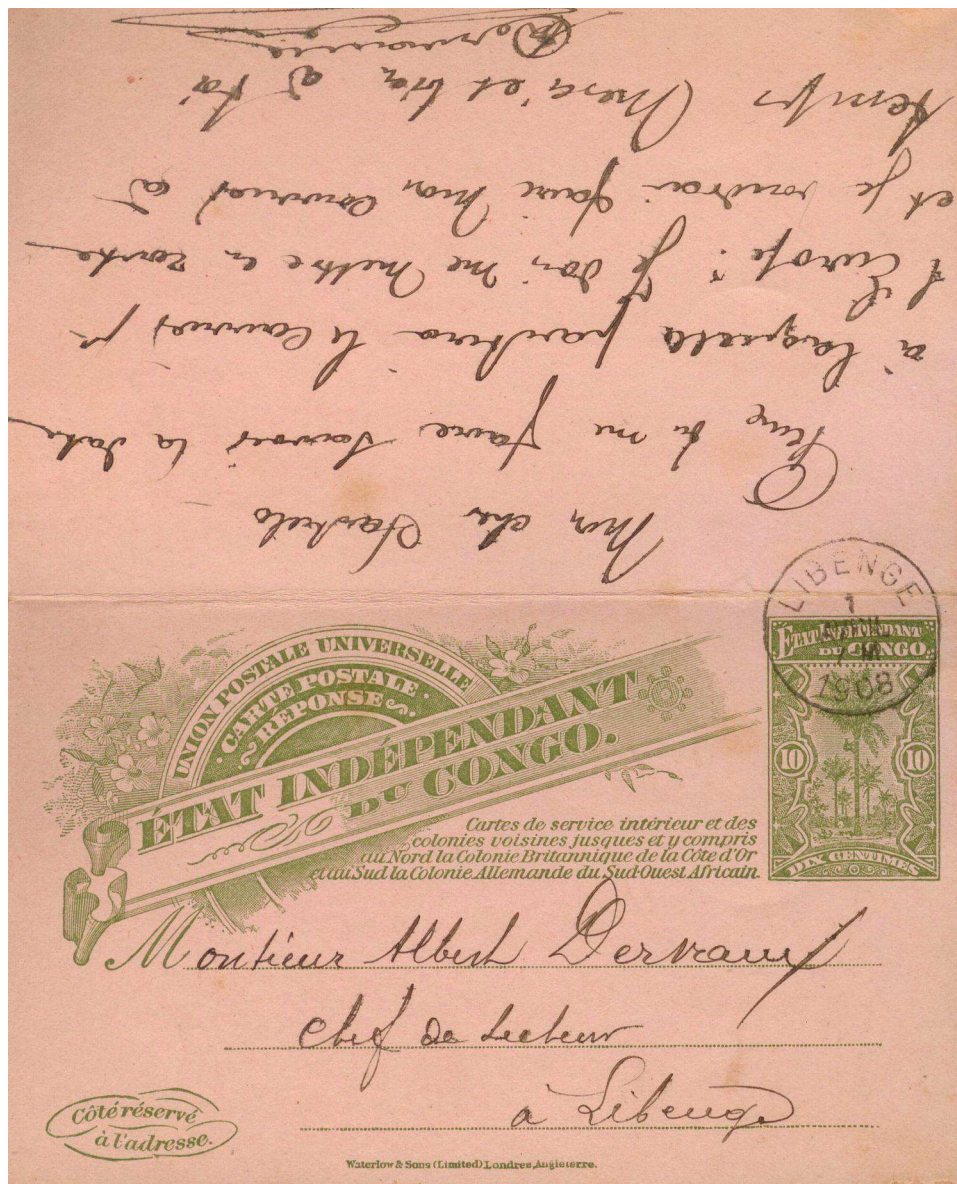 Mon cher
Peux tu me faire savoir la date
à laquelle partira le courrier pr
l'Europe? Je dois me mettre en route
et je voudrai faire mon courrier à
temps Merci et bien à toi
LIBENGE
1
1908
ÉTAT INDÉPENDANT
DU CONGO.
10 10
DIX CENTIMES
UNION POSTALE UNIVERSELLE
CARTE POSTALE
RÉPONSE
ÉTAT INDÉPENDANT
DU CONGO.
Cartes de service intérieur et des
colonies voisines jusques et y compris
au Nord la Colonie Britannique de la Côte d'Or
et au Sud la Colonie Allemande du Sud-Ouest Africain.
Monsieur Albert Dervaux
chef de secteur
à Libenge
Côté réservé
à l'adresse.
Waterlow & Sons (Limited) Londres, Angleterre.